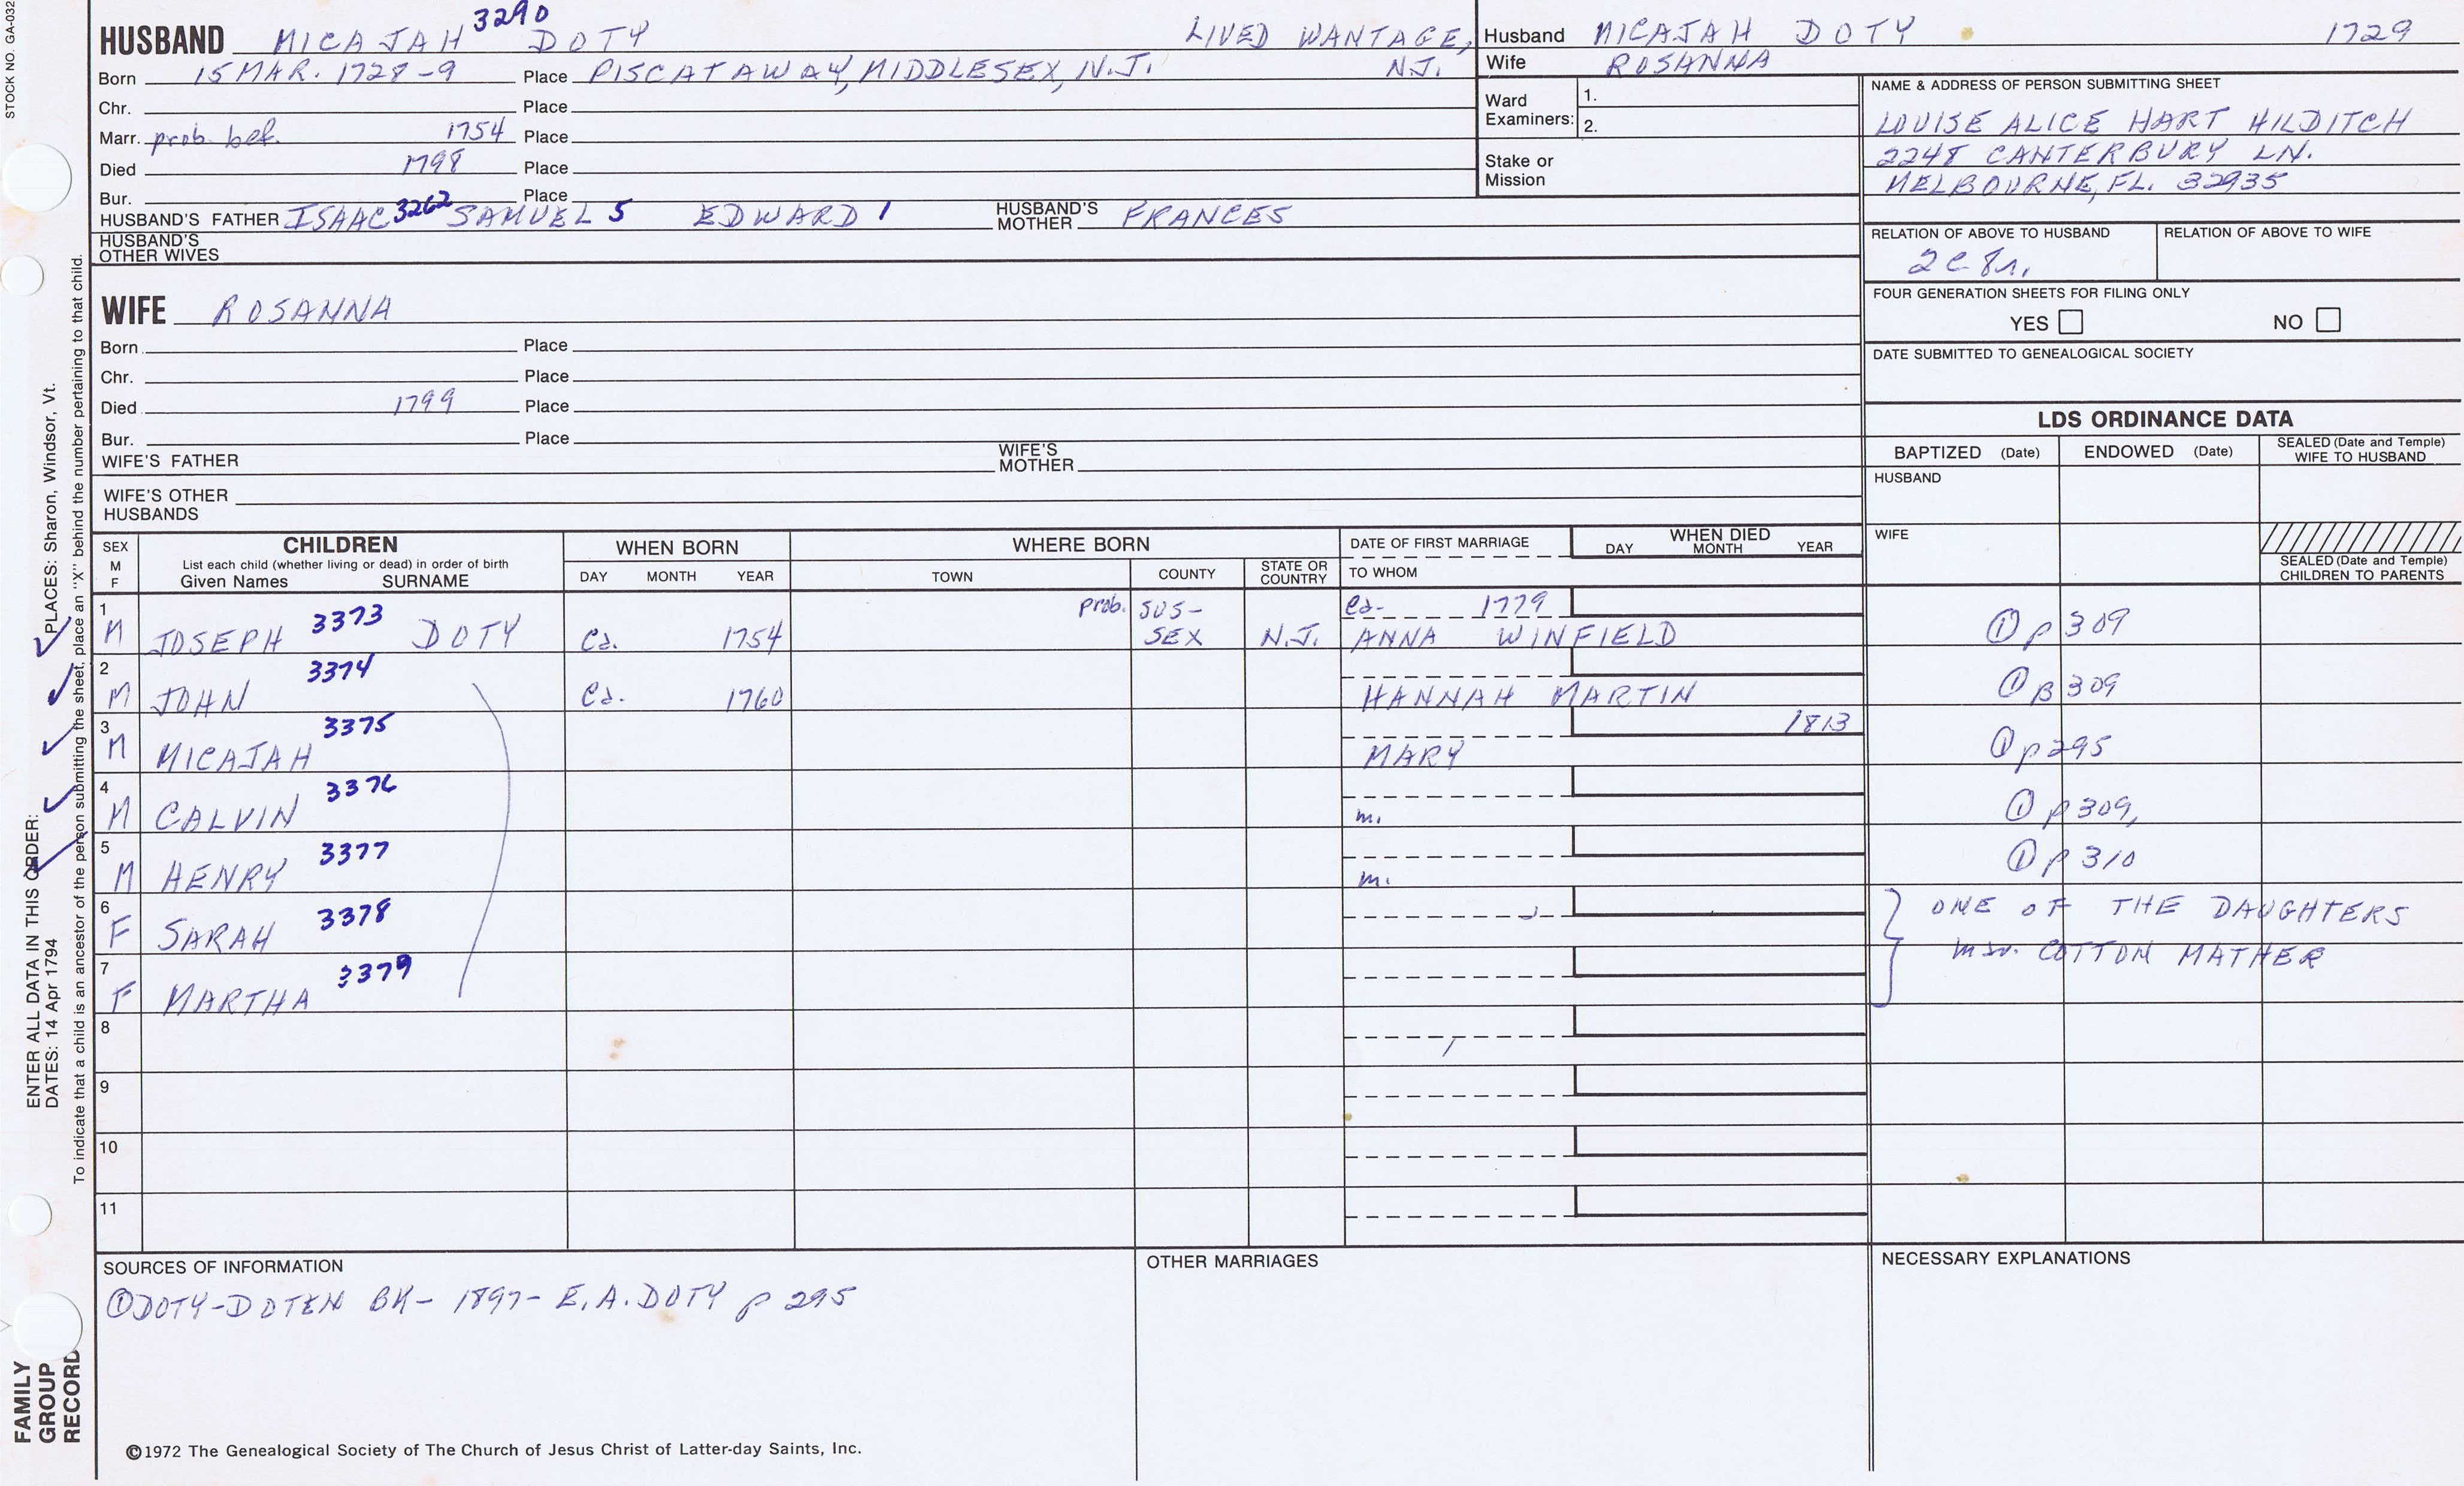 STOCK NO. GA-032
HUSBAND MICAJAH 3290 DOTY LIVED WANTAGE, N.J.
Born 15 MAR. 1728-9 Place PISCATAWAY, MIDDLESEX, N.J.
Chr. Place
Marr. prob. bef. 1754 Place
Died 1798 Place
Bur. Place
HUSBAND'S FATHER ISAAC 3262 SAMUEL 5 EDWARD 1 HUSBAND'S MOTHER FRANCES
HUSBAND'S OTHER WIVES
WIFE ROSANNA
Born Place
Chr. Place
Died 1799 Place
Bur. Place
WIFE'S FATHER WIFE'S MOTHER
WIFE'S OTHER HUSBANDS
Husband MICAJAH DOTY 1729
Wife ROSANNA
Ward Examiners: 1.
2.
Stake or Mission
NAME & ADDRESS OF PERSON SUBMITTING SHEET
LOUISE ALICE HART HILDITCH
2248 CANTERBURY LN.
MELBOURNE, FL. 32935
RELATION OF ABOVE TO HUSBAND RELATION OF ABOVE TO WIFE
2c 8r.
FOUR GENERATION SHEETS FOR FILING ONLY
YES NO
DATE SUBMITTED TO GENEALOGICAL SOCIETY
LDS ORDINANCE DATA
BAPTIZED (Date) ENDOWED (Date) SEALED (Date and Temple) WIFE TO HUSBAND
HUSBAND
WIFE
SEALED (Date and Temple) CHILDREN TO PARENTS
SEX M F
CHILDREN
List each child (whether living or dead) in order of birth
Given Names SURNAME
WHEN BORN
DAY MONTH YEAR
WHERE BORN
TOWN COUNTY STATE OR COUNTRY
DATE OF FIRST MARRIAGE
TO WHOM
WHEN DIED
DAY MONTH YEAR
1 M JOSEPH 3373 DOTY Ca. 1754 prob. SUS-SEX N.J. Ca- 1779 ANNA WINFIELD ① p 309
2 M JOHN 3374 Ca. 1760 HANNAH MARTIN ① p 309
3 M MICAJAH 3375 MARY 1813 ① p 295
4 M CALVIN 3376 m. ① p 309,
5 M HENRY 3377 m. ① p 310
6 F SARAH 3378 ONE OF THE DAUGHTERS
7 F MARTHA 3379 mar. COTTON MATHER
8
9
10
11
SOURCES OF INFORMATION
① DOTY-DOTEN BK- 1897- E.A. DOTY p 295
OTHER MARRIAGES
NECESSARY EXPLANATIONS
©1972 The Genealogical Society of The Church of Jesus Christ of Latter-day Saints, Inc.
ENTER ALL DATA IN THIS ORDER:
PLACES: Sharon, Windsor, Vt.
DATES: 14 Apr 1794
To indicate that a child is an ancestor of the person submitting the sheet, place an "X" behind the number pertaining to that child.
FAMILY
GROUP
RECORD